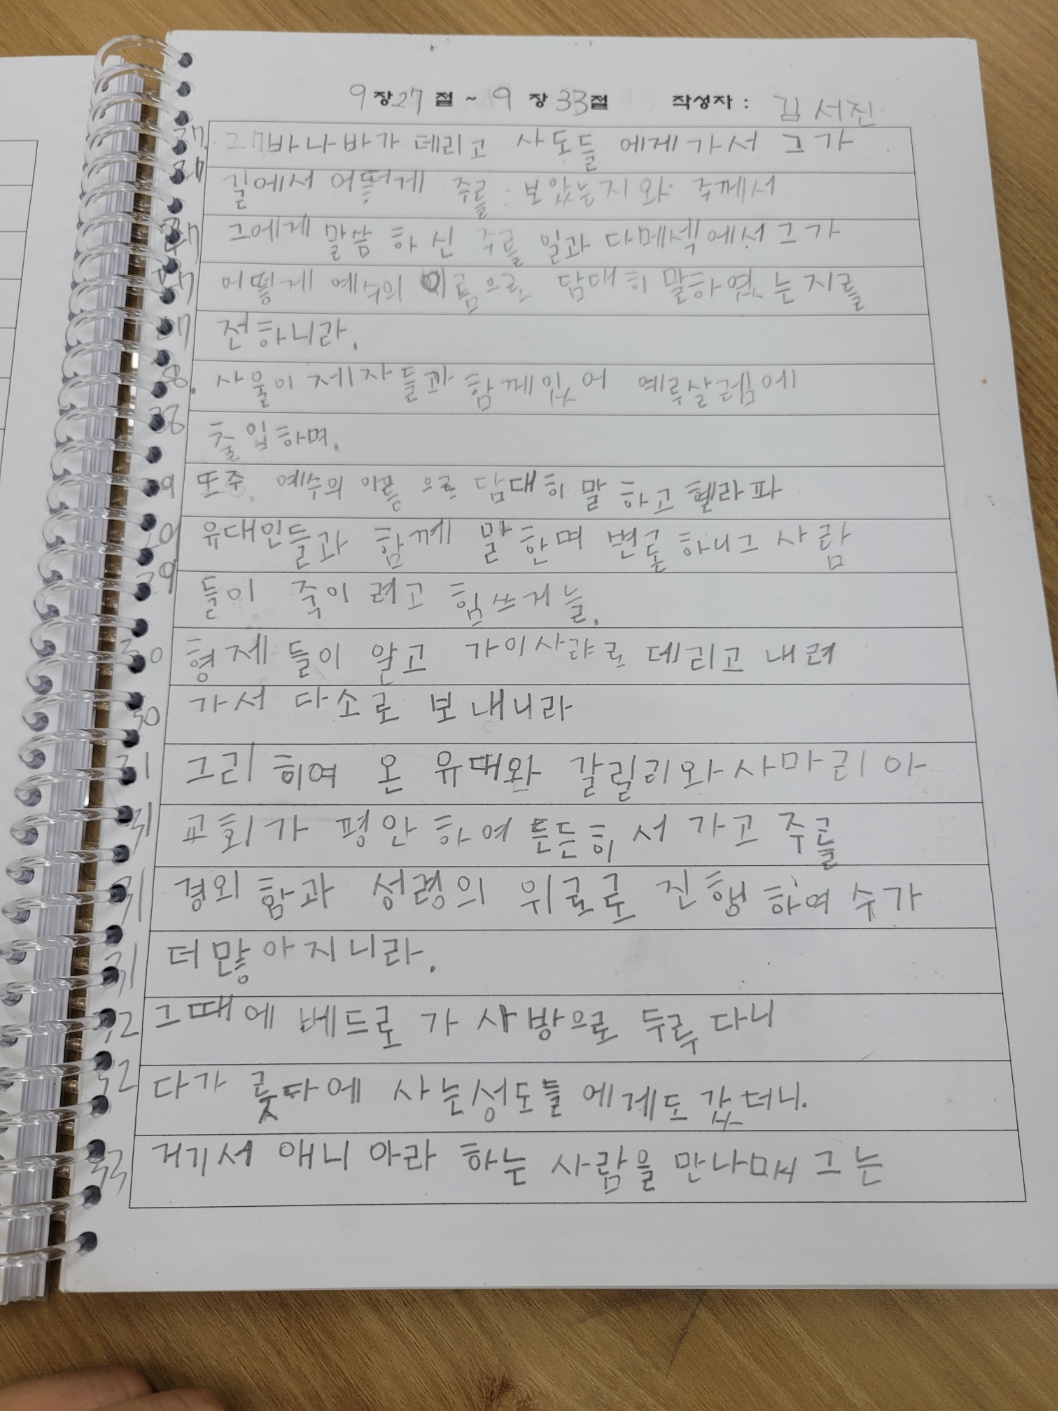 9 장 27 절 ~ 9 장 33 절 작성자 : 김서진
27 바나바가 데리고 사도들 에게 가서 그가
27 길에서 어떻게 주를 보았는지와 주께서
27 그에게 말씀 하신 일과 다메섹에서 그가
27 어떻게 예수의 이름으로 담대히 말하였는지를
27 전하니라.
28. 사울이 제자들과 함께있어 예루살렘에
28 출입하며.
29 또주 예수의 이름 으로 담대히 말 하고 헬라파
29 유대인들과 함께 말한며 변론 하니 그 사람
29 들이 죽이 려고 힘쓰거늘.
30 형제 들이 알고 가이사랴로 데리고 내려
30 가서 다소로 보내니라
31 그리 하여 온 유대와 갈릴리와 사마리아
31 교회가 평안 하여 든든히 서 가고 주를
31 경외 함과 성령의 위로로 진행 하여 수가
31 더 많아지니라.
32 그때에 베드로 가 사방으로 두루 다니
32 다가 룻다에 사는성도들 에게도 갔더니.
33 거기서 애니 아라 하는 사람을 만나매 그는